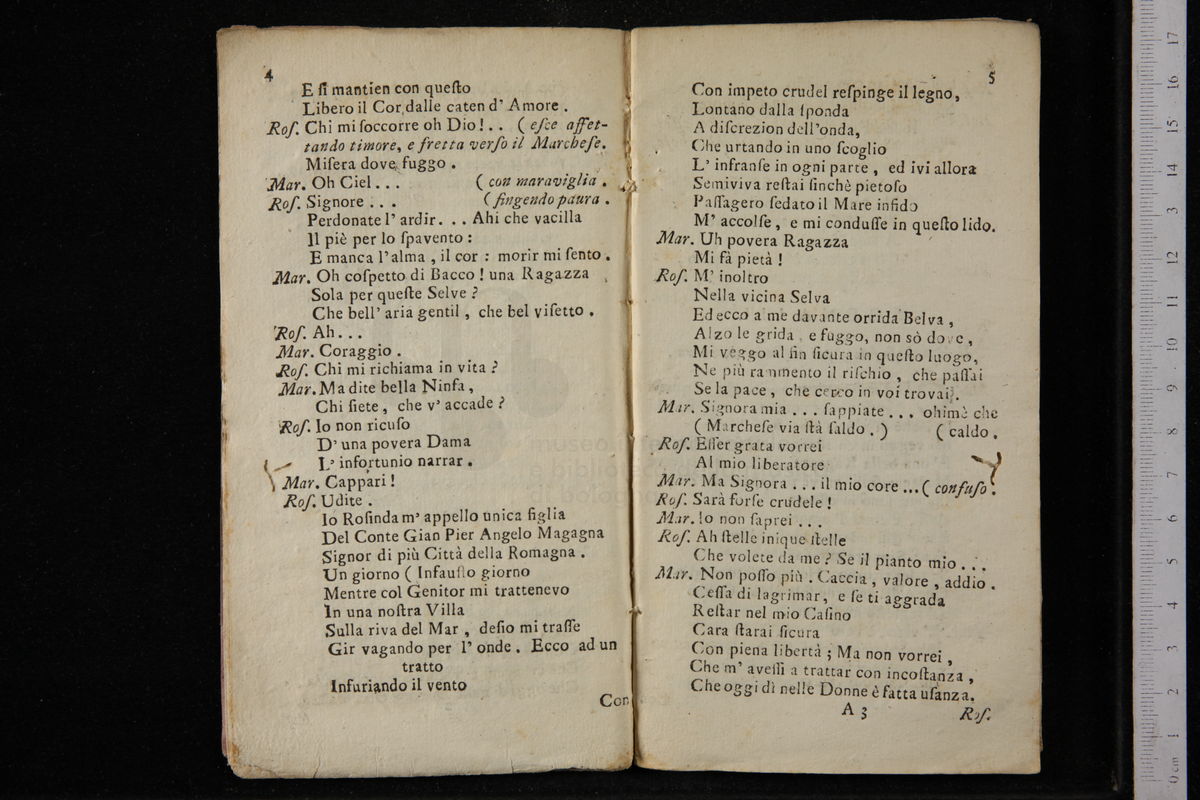 4
E ſi mantien con queſto
Libero il Cor dalle caten d' Amore .
Roſ. Chi mi ſoccorre oh Dio ! . . ( eſce affet-
tando timore, e fretta verſo il Marcheſe.
Miſera dove fuggo .
Mar. Oh Ciel . . . ( con maraviglia .
Roſ. Signore . . . ( fingendo paura .
Perdonate l' ardir. . . Ahi che vacilla
Il piè per lo ſpavento :
E manca l'alma , il cor : morir mi ſento .
Mar. Oh coſpetto di Bacco ! una Ragazza
Sola per queſte Selve ?
Che bell' aria gentil , che bel viſetto .
Roſ. Ah . . .
Mar. Coraggio .
Roſ. Chi mi richiama in vita ?
Mar. Ma dite bella Ninfa ,
Chi ſiete , che v' accade ?
Roſ. Io non ricuſo
D' una povera Dama
L' infortunio narrar .
Mar. Cappari !
Roſ. Udite .
Io Roſinda m' appello unica figlia
Del Conte Gian Pier Angelo Magagna
Signor di più Città della Romagna .
Un giorno ( Infauſto giorno
Mentre col Genitor mi trattenevo
In una noſtra Villa
Sulla riva del Mar , deſio mi traſſe
Gir vagando per l' onde . Ecco ad un
tratto
Infuriando il vento
Con
5
Con impeto crudel reſpinge il legno,
Lontano dalla ſponda
A diſcrezion dell'onda,
Che urtando in uno ſcoglio
L' infranſe in ogni parte , ed ivi allora
Semiviva reſtai finchè pietoſo
Paſſagero ſedato il Mare infido
M' accolſe , e mi conduſſe in queſto lido.
Mar. Uh povera Ragazza
Mi fà pietà !
Roſ. M' inoltro
Nella vicina Selva
Ed ecco a me davante orrida Belva ,
Alzo le grida , e fuggo, non sò dove ,
Mi veggo al fin ſicura in queſto luogo,
Ne più rammento il riſchio , che paſſai
Se la pace , che cerco in voi trovai.
Mar. Signora mia . . . ſappiate . . . ohimè che
( Marcheſe via ſtà ſaldo . ) ( caldo .
Roſ. Eſſer grata vorrei
Al mio liberatore
Mar. Ma Signora . . . il mio core ... ( confuſo .
Roſ. Sarà forſe crudele !
Mar. Io non ſaprei . . .
Roſ. Ah ſtelle inique ſtelle
Che volete da me ? Se il pianto mio . . .
Mar. Non poſſo più . Caccia , valore , addio .
Ceſſa di lagrimar, e ſe ti aggrada
Reſtar nel mio Caſino
Cara ſtarai ſicura
Con piena libertà ; Ma non vorrei ,
Che m' aveſſi a trattar con incoſtanza ,
Che oggi dì nelle Donne è fatta uſanza.
A 3
Roſ.